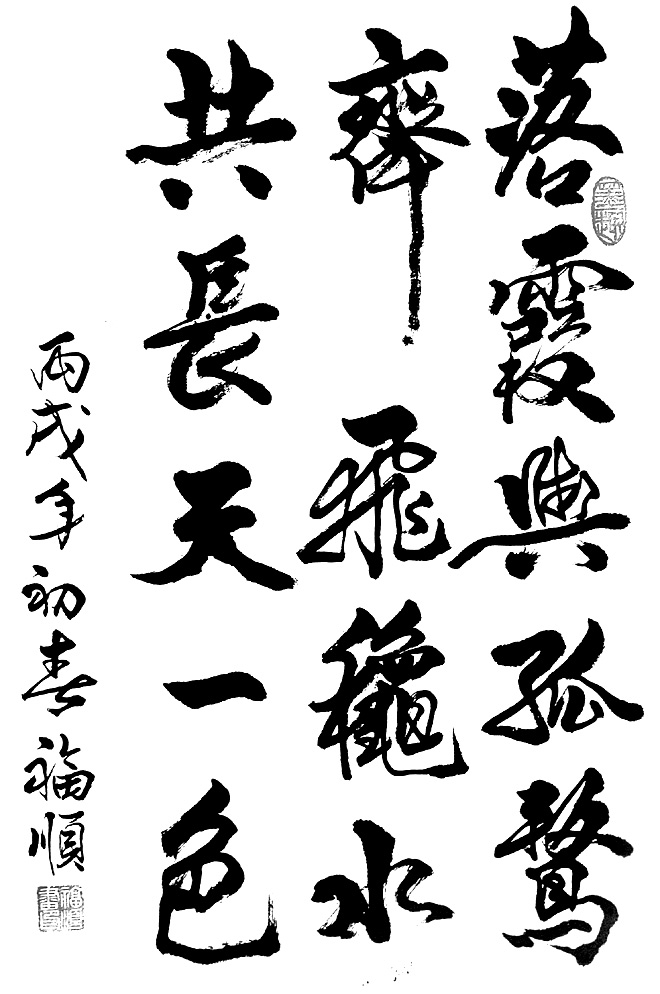 落霞與孤鶩
齊飛穐水
共長天一色
丙戌年初春福順